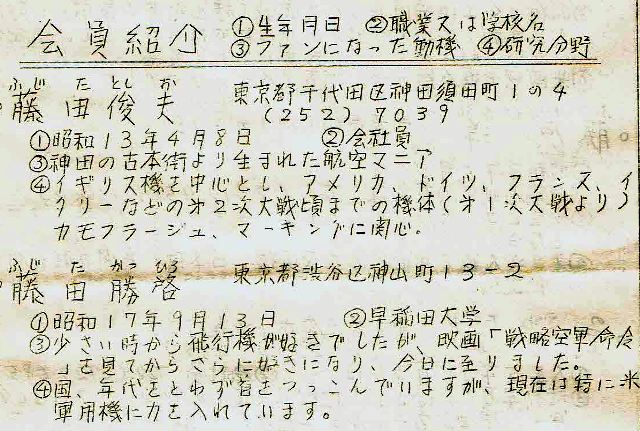 会員紹介 ①生年月日 ②職業又は学校名
③ファンになった動機 ④研究分野
ふじ た とし お
藤田俊夫 東京都千代田区神田須田町1の4
(252) 7039
①昭和13年4月8日 ②会社員
③神田の古本街より生まれた航空マニア
④イギリス機を中心とし、アメリカ、ドイツ、フランス、イ
タリーなどの第2次大戦頃までの機体(第1次大戦より)
カモフラージュ、マーキングに関心。
ふじ た かつ ひろ
藤田勝啓 東京都渋谷区神山町13-2
①昭和17年9月13日 ②早稲田大学
③少さい時から飛行機が好きでしたが、映画「戦略空軍命令
」を見てからさらに好きになり、今日に至りました。
④国、年代をとわず首をつっこんでいますが、現在は特に米
軍用機に力を入れています。